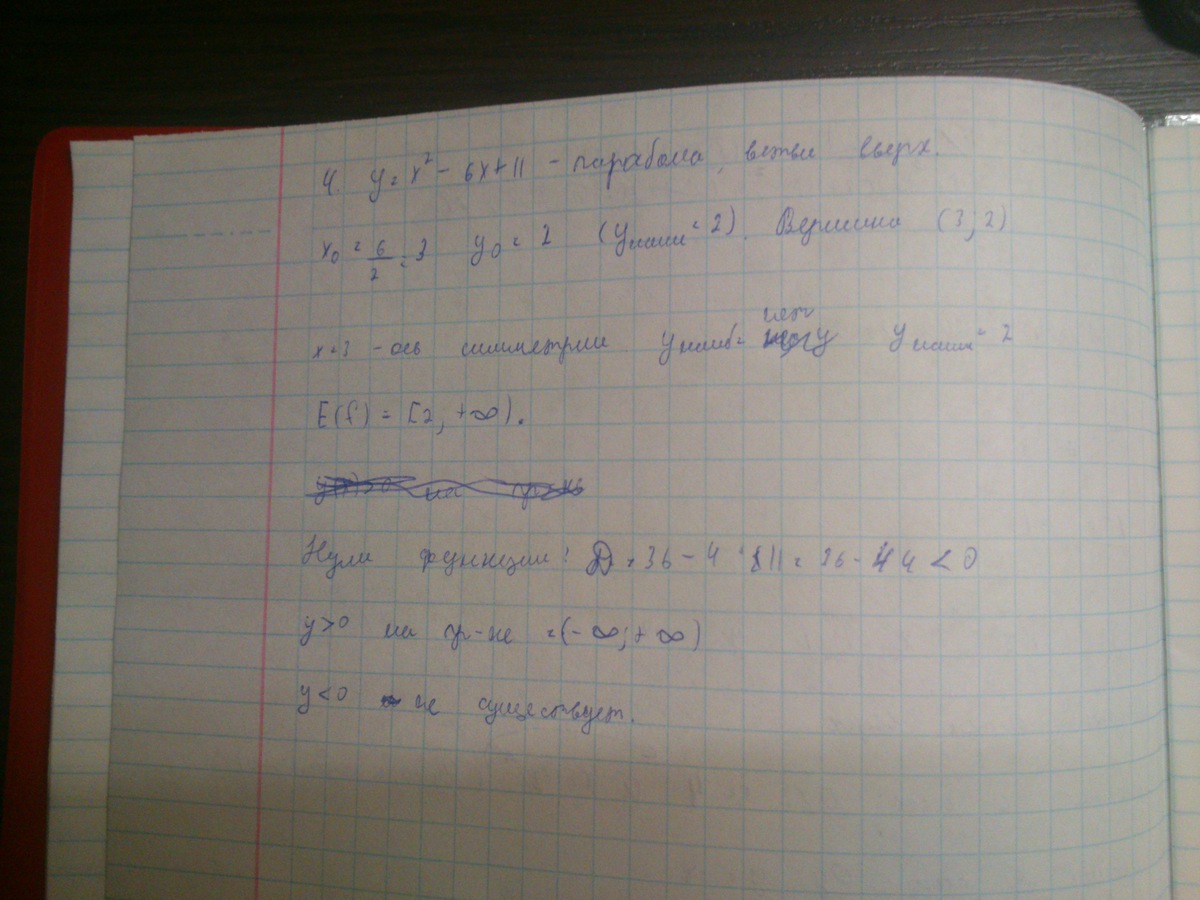 4. y = x² - 6x+11 - парабола, ветви вверх.
x₀ = 6/2 = 3 y₀ = 2 (yнаим = 2). Вершина (3; 2)
x=3 - ось симметрии yнаиб = нет yнаим = 2
E(f) = [2, +∞).
Нули функции: D = 36 - 4 · 11 = 36 - 44 < 0
y>0 на пр-ке =(-∞;+∞)
y<0 не существует.